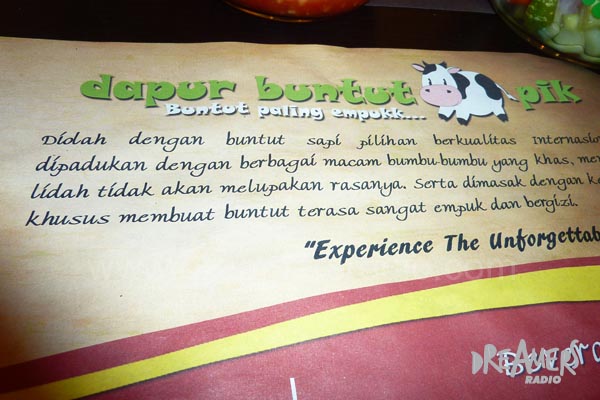 dapur buntut pik
Buntut paling empukk...
Diolah dengan buntut sapi pilihan berkualitas
dipadukan dengan berbagai macam bumbu-bumbu yang khas,
lidah tidak akan melupakan rasanya. Serta dimasak dengan
khusus membuat buntut terasa sangat empuk dan bergizi.
"Experience The
DREAMERS
RADIO